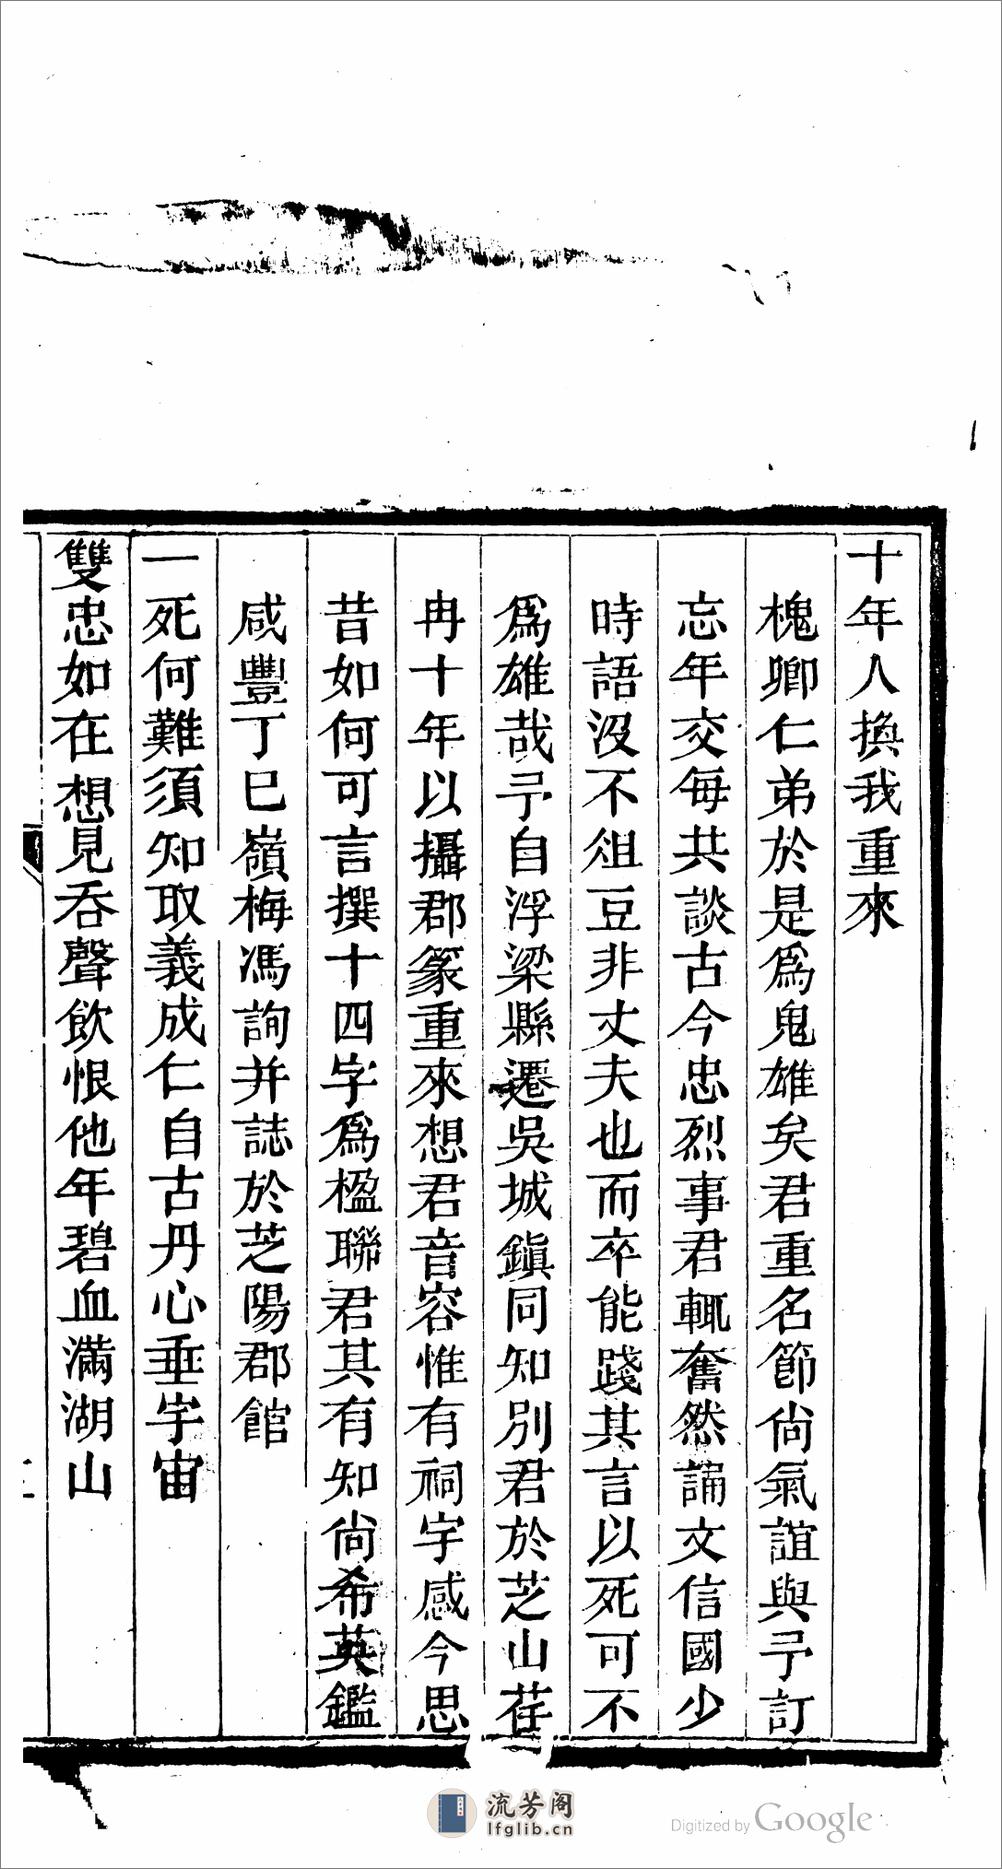 十年人換我重來
槐卿仁弟於是爲鬼雄矣君重名節尙氣誼與予訂
忘年交每共談古今忠烈事君輒奮然誦文信國少
時語沒不俎豆非丈夫也而卒能踐其言以死可不
爲雄哉予自浮梁縣遷吳城鎭同知別君於芝山荏
冉十年以攝郡篆重來想君音容惟有祠宇感今思
昔如何可言撰十四字爲楹聯君其有知尙希英鑑
咸豐丁巳嶺梅馮詢并誌於芝陽郡館
一死何難須知取義成仁自古丹心垂宇宙
雙忠如在想見吞聲飲恨他年碧血滿湖山
流芳阁
lfglib.cn
Digitized by Google